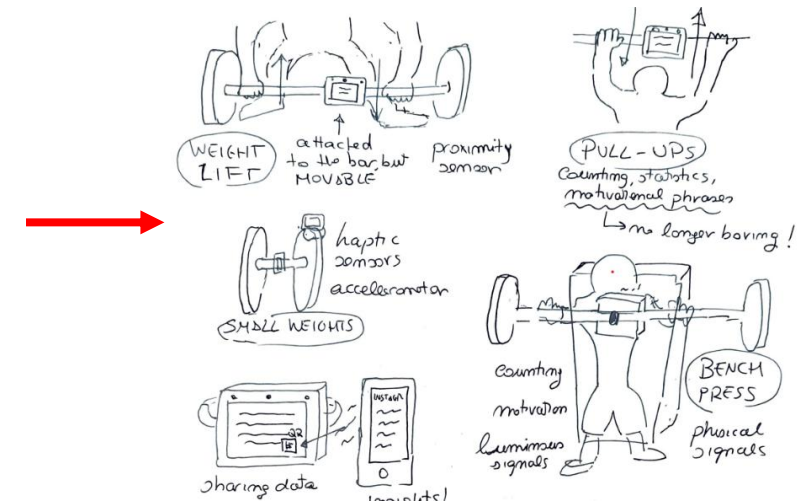 WEIGHT
LIFT
attached
to the bar, but
MOVABLE
proximity
sensor
PULL-UPS
Counting, statistics,
motivational phrases
no longer boring!
haptic
sensors
accelerometer
SMALL WEIGHTS
counting
motivation
luminous
signals
BENCH
PRESS
physical
signals
QR
sharing data
insights!